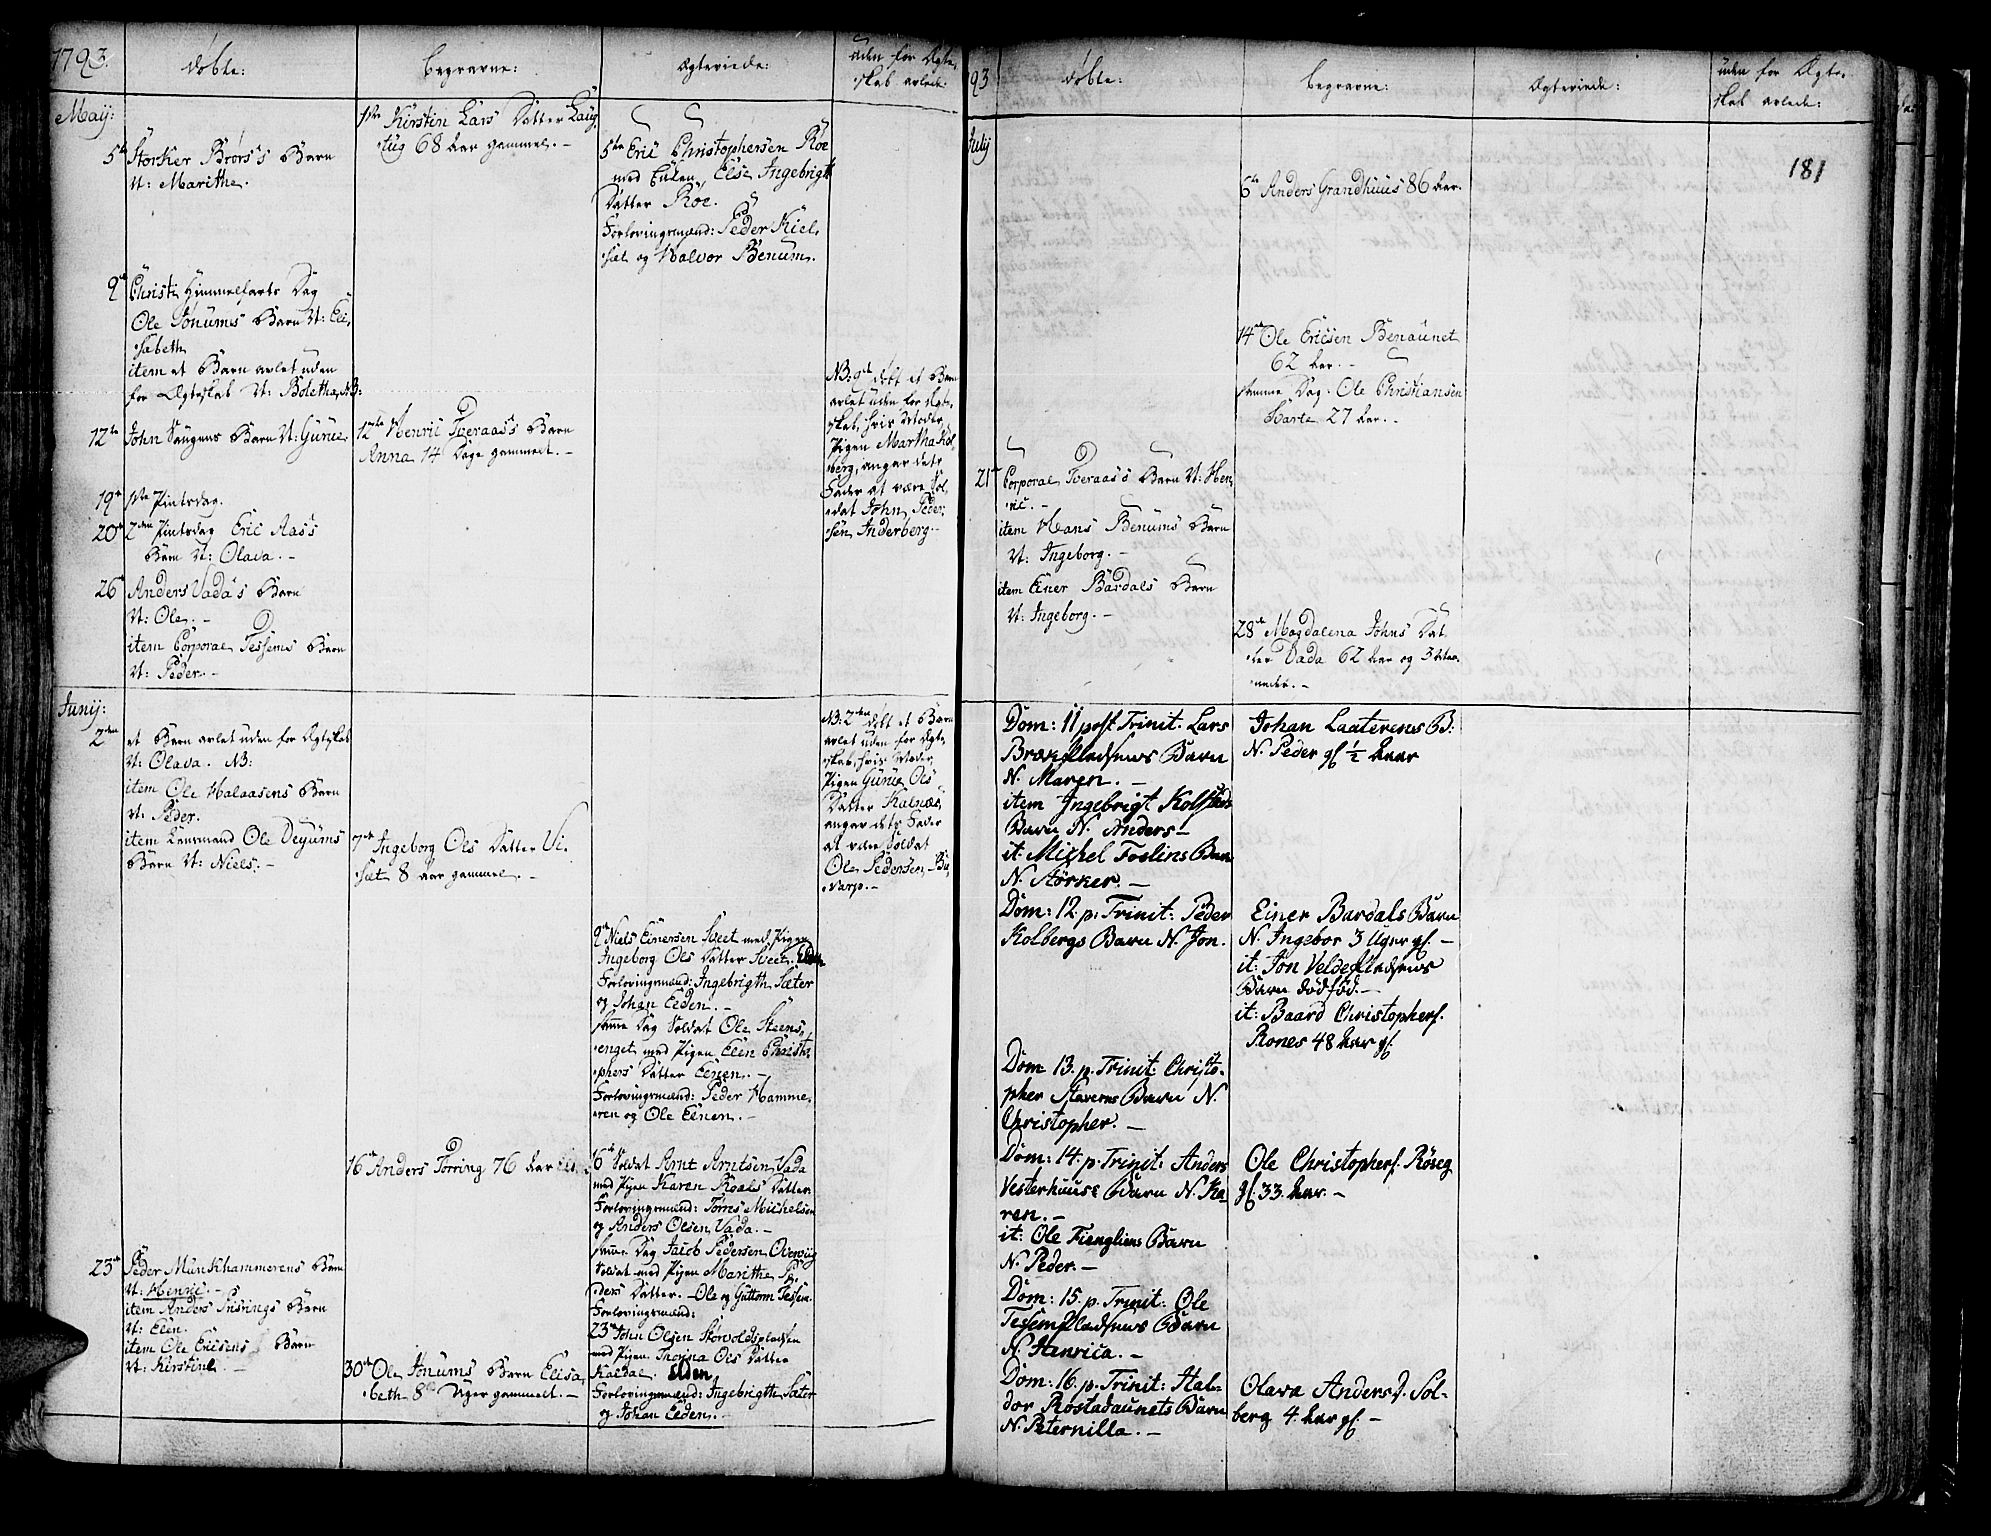 1793.
döbte:
begravne:
Ægteviede:
uden for Ægte-
skab avlede
Maij:
5te
Storker Brörs's Barn
N: Marithe.
9de
Christi Himmelfarts Dag
Ole Jönums Barn N: Eli-
sabeth
item et Barn avlet uden
for Ægteskab N: Boletha. NB:
12te
John Saugens Barn N: Gunie.
19de
1ste Pintsdag.
20de
2den Pintsdag Eric Aas's
Barn N: Olava. -
26de
Anders Vada's Barn
N: Ole. -
item Corporal Tessems Barn
N: Peder. -
Junij:
2den
et Barn avlet uden for Ægteskab
N: Olava. NB:
item Ole Halaasens Barn
N: Peder.
item Lensmand Ole Deyums
Barn N: Niels. -
23de
Peder Munkhammerens Barn
N: Henric. -
item Anders Barn
N: Elen.
item Ole Ericsens Barn
N: Kirstine. -
1ste Kirstin Lars Datter Laug-
tug 68 Aar gammel. -
12te Henric Tveraas's Barn
Anna 14 Dage gammelt. -
7de Ingeborg Ols Datter Vi-
sæt 8 Aar gammel. -
16de Anders Torring 76 Aar
30de Ole Jönums Barn Elisa-
beth 8 Uger gammelt. -
5te Eric Christophersen Röe
med Enken Else Ingebrigt
Datter Röe.
Forlovingsmænd: Peder Kiel-
sæt og Halvor Benum.
9de Niels Einersen Sveet med Pigen
Ingeborg Ols Datter Sveet.
Forlovingsmænd: Ingebrigth Sæter
og Johan Elden. -
samme Dag Soldat Ole Steens-
enget med Pigen Elen Christo-
phers Datter Elnen. -
Forlovingsmænd: Peder Hamme-
ren og Ole Elnen. -
16de Soldat Arnt Arntsen Vada
med Pigen Karen Roals Datter
Forlovingsmænd: Törris Michelsen
og Anders Olsen Vada. -
samme Dag Jacob Pedersen
Soldat med Pigen Marithe Pe-
ders Datter. - Ole og Guttorm Tessem.
Forlovingsmænd:
23de John Olsen Störvoldspladsen
med Pigen Ols Datter
Kaldal. Elden
Forlovingsmænd: Ingebrigth Sæter
og Johan Elden. -
NB: 9de döbt et Barn
avlet uden for Ægte-
skab, hvis Moder,
Pigen Martha Kol-
berg, angav dets
Fader at være Sol-
dat John Peder-
sen Inderberg. -
NB: 2den döbt et Barn
avlet uden for Ægte-
skab, hvis Moder,
Pigen Gunie Ols
Datter Kalnæs,
angav dets Fader
at være Soldat
Ole Pedersen Bu-
varp. -
93
döbte:
begravne:
Ægteviede:
uden for Ægte-
skab avlede:
181
Julij
21de
Corporal Tveraas's Barn N: Hen-
ric. -
item Hans Benums Barn
N: Ingeborg. -
item Einer Bardals Barn
N: Ingeborg. -
Dom: 11 post Trinit. Lars
Brækpladsens Barn
N. Maren. -
item Ingebrigt Kolstads
Barn N. Anders -
it: Michel Foslins Barn
N. Störker. -
Dom: 12. p. Trinit: Peder
Kolbergs Barn N. Jon.
Dom 13. p. Trinit: Christo-
pher Staverns Barn N.
Christopher. -
Dom: 14. p. Trinit: Anders
Vesterhuuse Barn N. Ka-
ren. -
it: Ole Fiengliens Barn
N. Peder. -
Dom: 15. p. Trinit: Ole
Tessempladsens Barn
N. Henrica. -
Dom: 16. p. Trinit: Hal-
dor Rostadaunets Barn
N. Peternilla. -
6te Anders Grandhuus 86 Aar.
14de Ole Ericsen Benaunet
62 Aar. -
samme Dag Ole Christiansen
27 Aar. -
28de Magdalena Johns Dat-
ter Vada 62 Aar og 3 Maa-
neder. -
Johan Laaterens B:
N. Peder gl. ½ Aar
Einer Bardals Barn
N. Ingebor 3 Uger gl. -
it: Jon Veldepladsens
Barn dödföd. -
it: Baard Christophers.
Rones 48 Aar gl:
Ole Christophers. Röseg
gl. 33. Aar. -
Olava Andersd. Sol-
berg 4. Aar gl. -